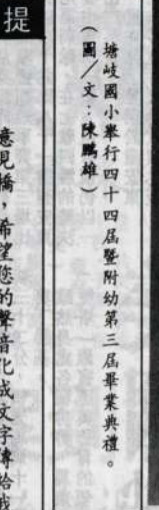 塘岐國小舉行四十四屆暨附幼第三屆畢業典禮。
（圖／文：陳鵬雄）
提
意見橋，希望您的聲音化成文字傳給我